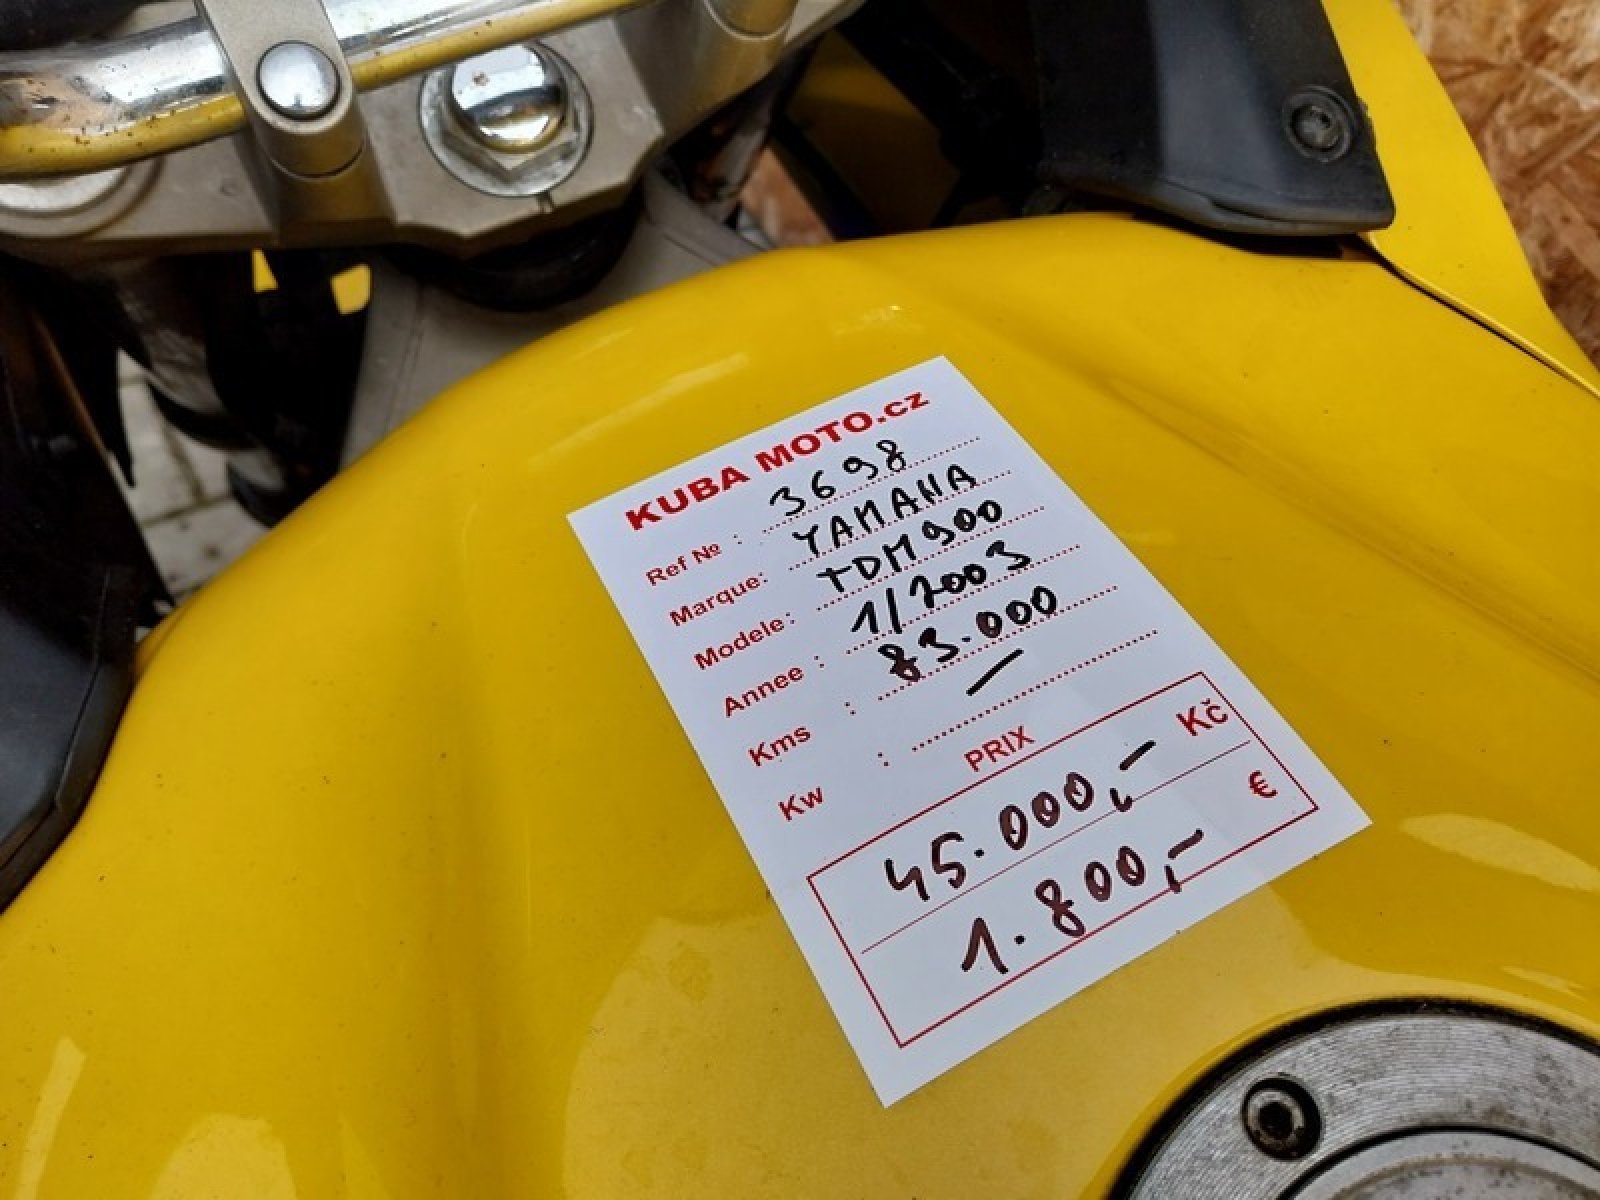 KUBA MOTO.cz
Ref № : 3698
Marque: YAMAHA
Modele: TDM900
Annee : 1/2003
Kms : 83.000
Kw : —
PRIX
45.000,- Kč
1.800,- €